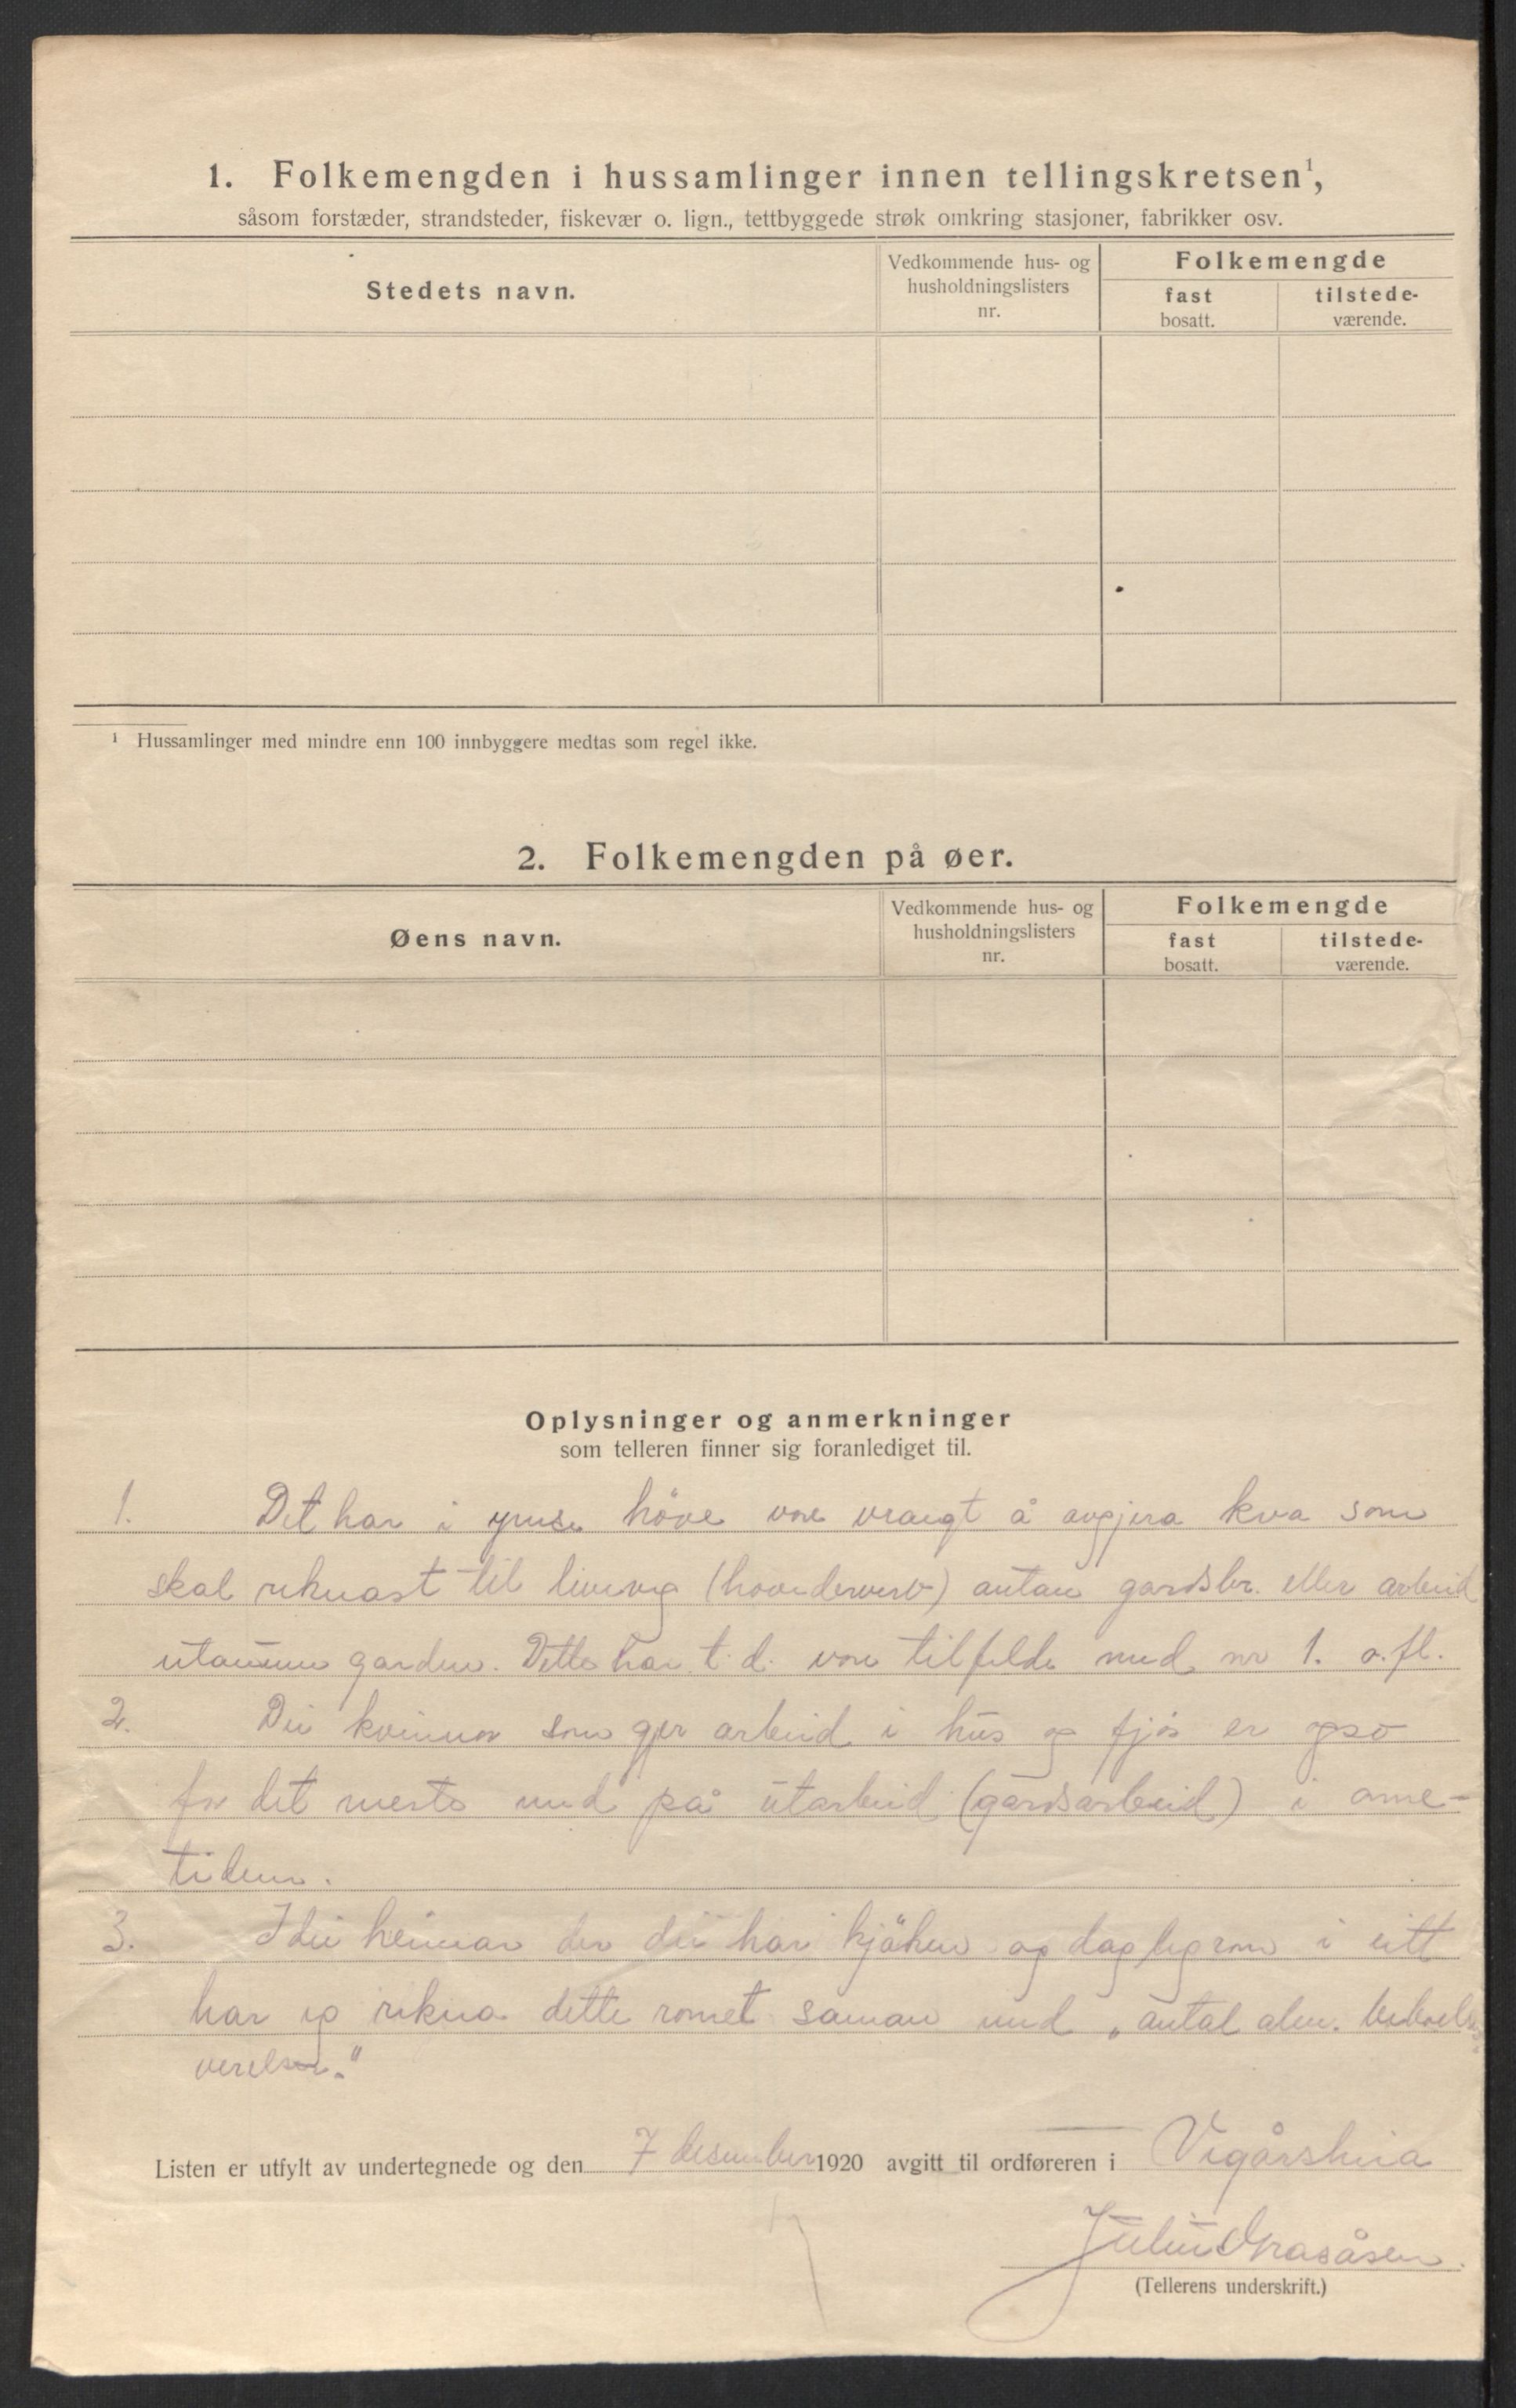 1. Folkemengden i hussamlinger innen tellingskretsen¹,
såsom forstæder, strandsteder, fiskevær o. lign., tettbyggede strøk omkring stasjoner, fabrikker osv.
Stedets navn.
Vedkommende hus- og
husholdningslisters
nr.
Folkemengde
fast
bosatt.
tilstede-
værende.
¹ Hussamlinger med mindre enn 100 innbyggere medtas som regel ikke.
2. Folkemengden på øer.
Øens navn.
Vedkommende hus- og
husholdningslisters
nr.
Folkemengde
fast
bosatt.
tilstede-
værende.
Oplysninger og anmerkninger
som telleren finner sig foranlediget til.
1. Det har i ymse höve vore vrangt å avgjera kva som
skal reknast til liveveg (hovederverv) antan gardsbr. eller arbeid
utanum garden. Dette har t.d. vore tilfelde med nr 1. o.fl.
2. Dei kvinnor som gjer arbeid i hus og fjös er ogso
for det meste med på utarbeid (gardsarbeid) i onne-
tidene.
3. I dei heimar der dei har kjöken og daglegrom i eitt
har eg rekna dette romet saman med „antal alm. beboelses
verelser."
Listen er utfylt av undertegnede og den 7 desember 1920 avgitt til ordføreren i Vegårsheia
Grasåsen
(Tellerens underskrift.)